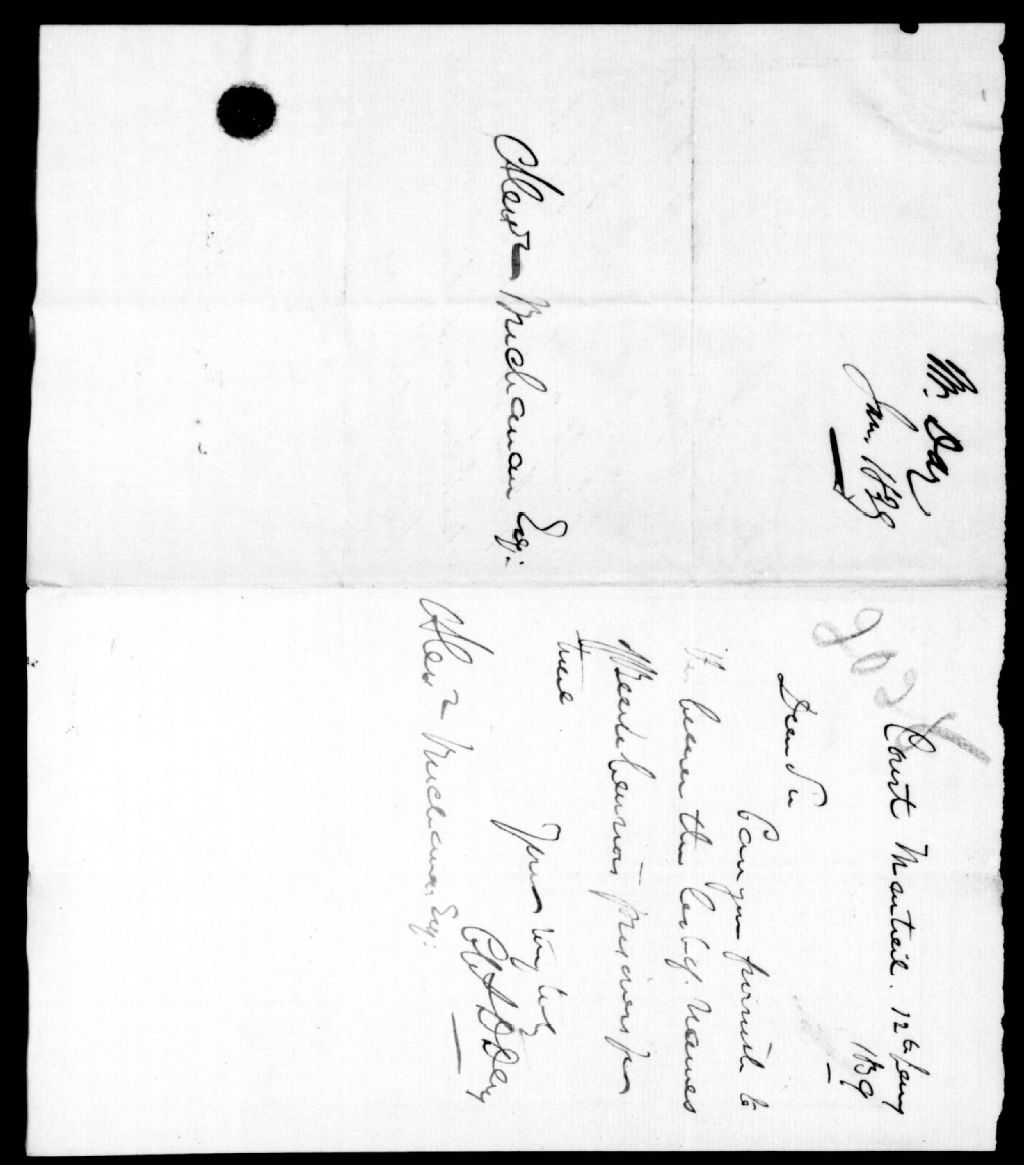 Mr. Day
Jan. 1839
Alexr Buchanan Esq:
2026
Court Martial. 12th Jany
1839
Dear Sir
Can you furnish to
the bearer the list of names
of Beauharnois prisoners for
trial
Yours very truly
C D Day
Alexr Buchanan Esq: